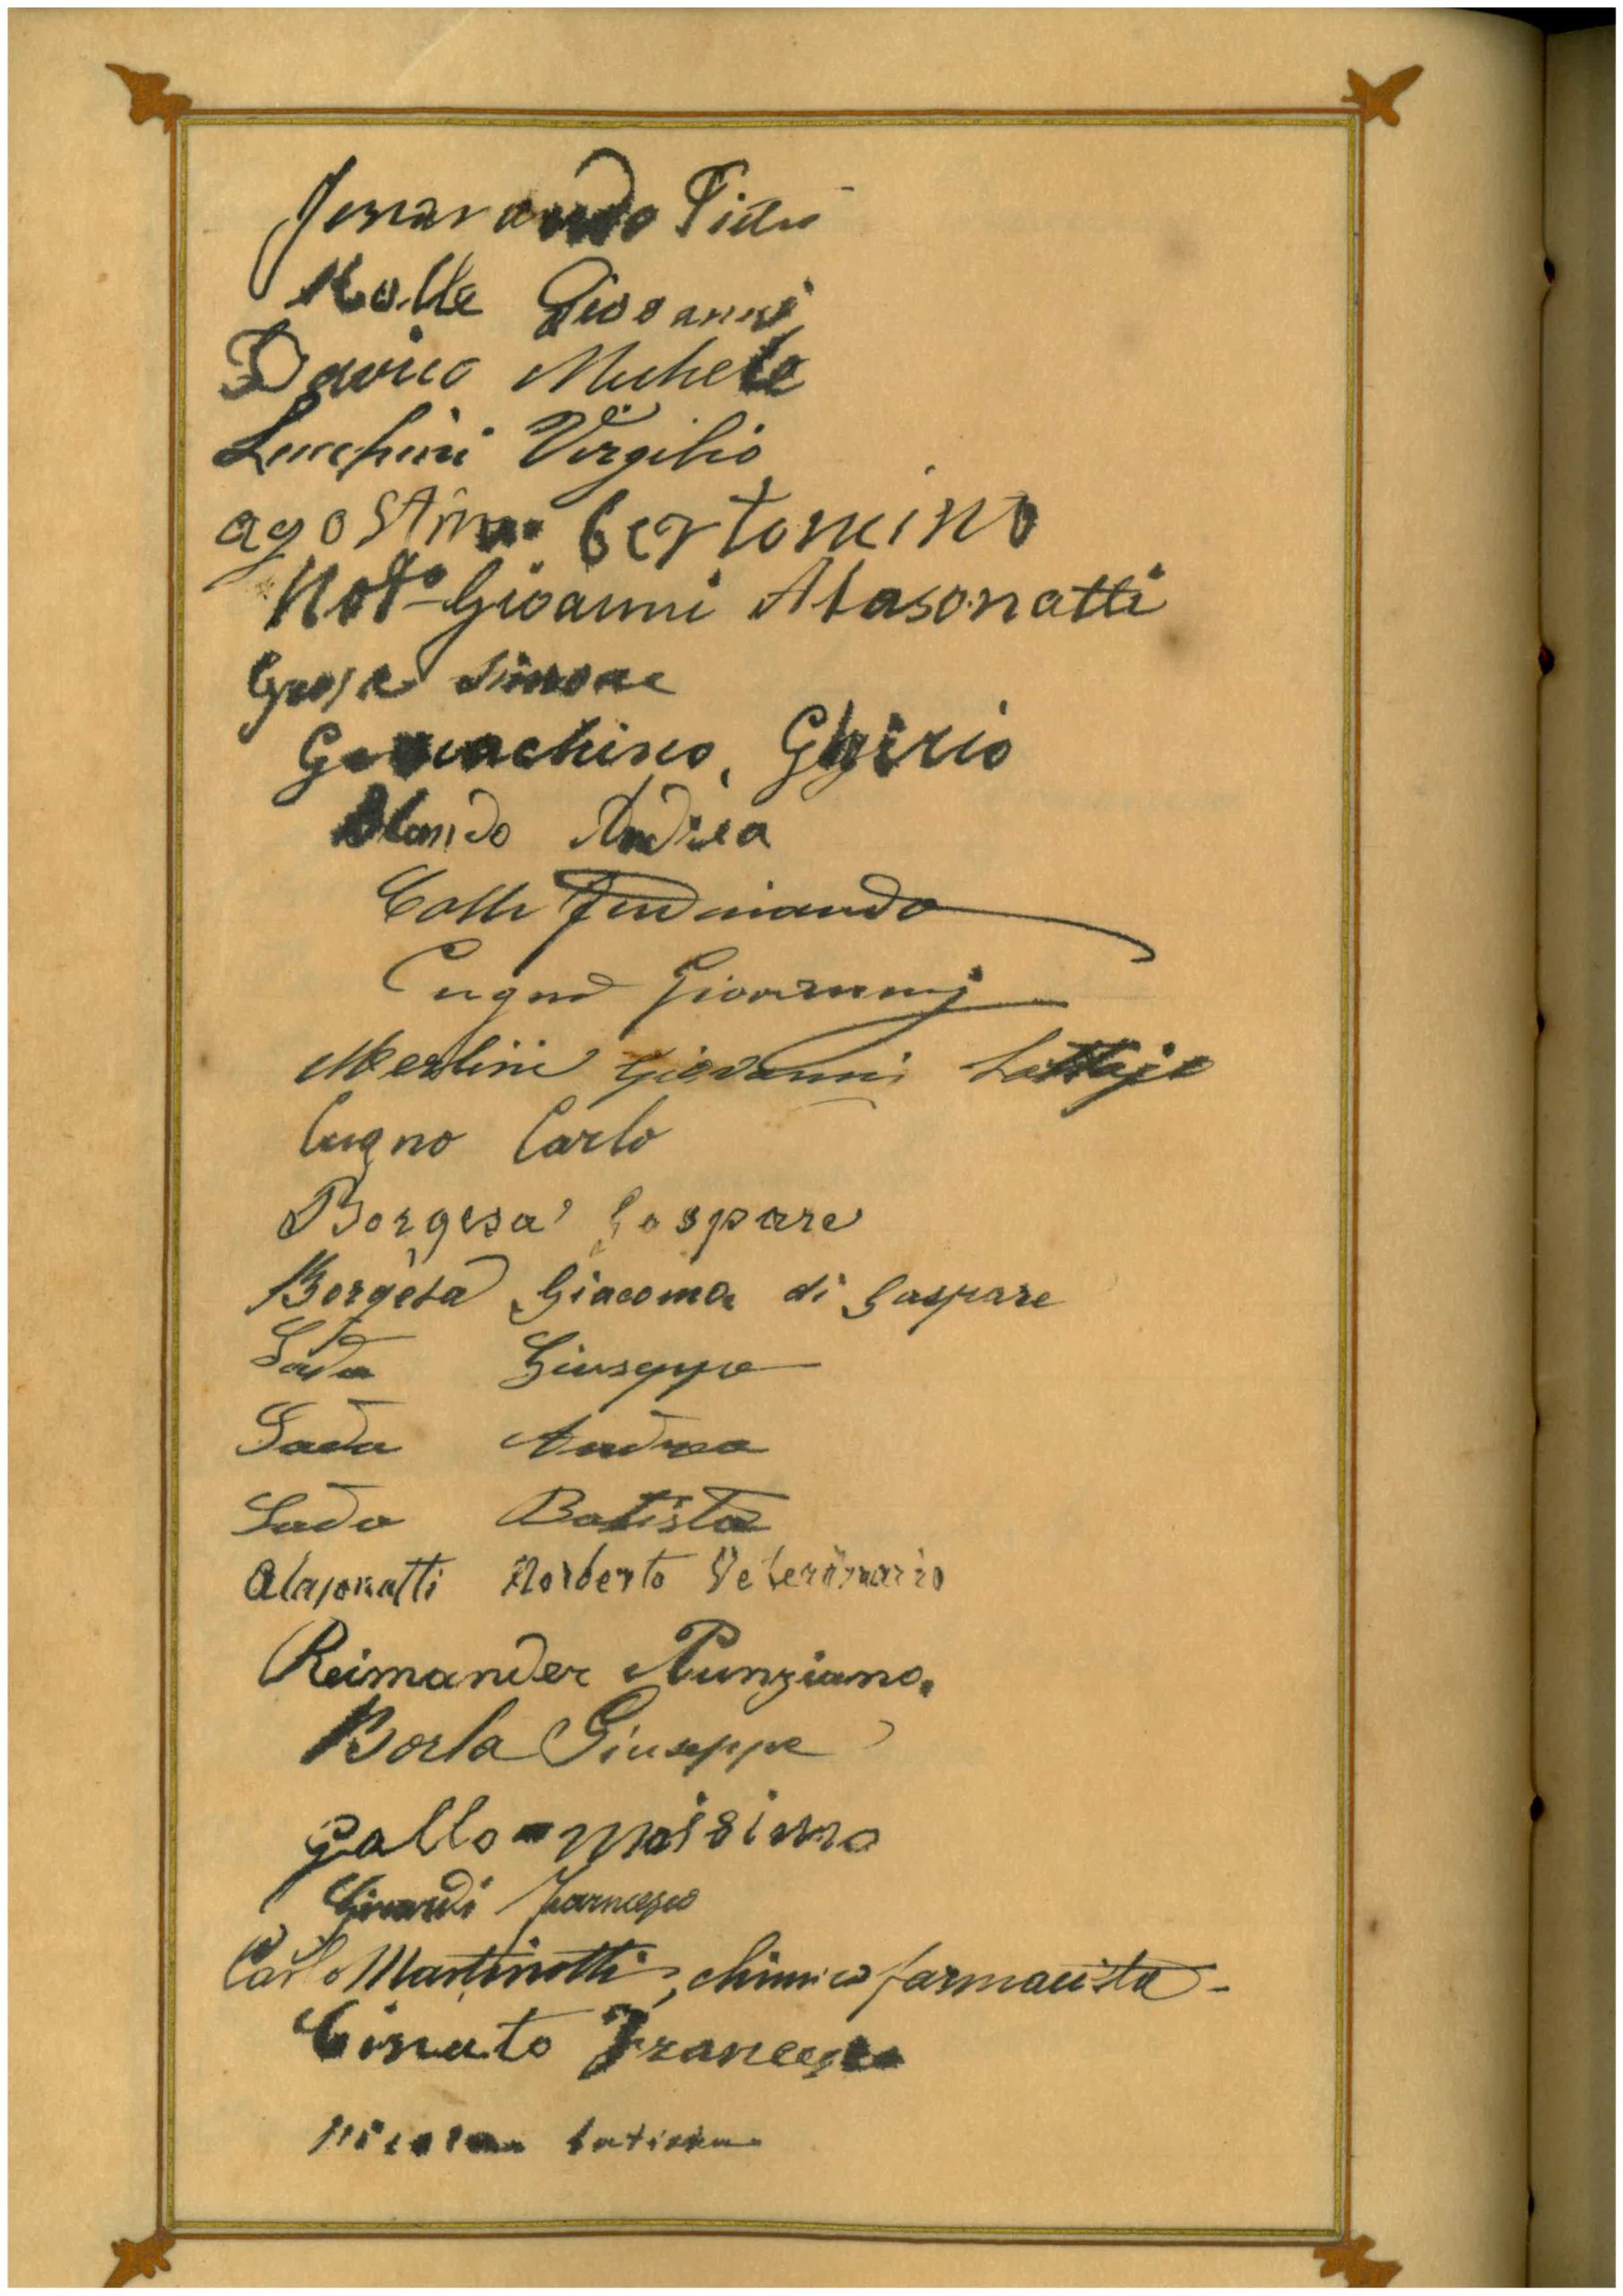 Pietro
Rolle Giovanni
Davico Michele
Lucchini Virgilio
agostino bertoncino
Not.º Gioanni Alasonatti
Simone
Ghirio
Blando Andrea
Colli Ferdinando
Cugno Giovanni
Merlini Giovanni
Cugno Carlo
Borgesa' Gaspare
Borgesa Giacomo di Gaspare
Sada Giuseppe
Sada Andrea
Sada Batista
Alasonatti Norberto Veterinario
Reimander Punziano.
Borla Giuseppe
gallo = maisimo
Girardi Francesco
Carlo Martinotti, chimico farmacista -
Cinato Francesco